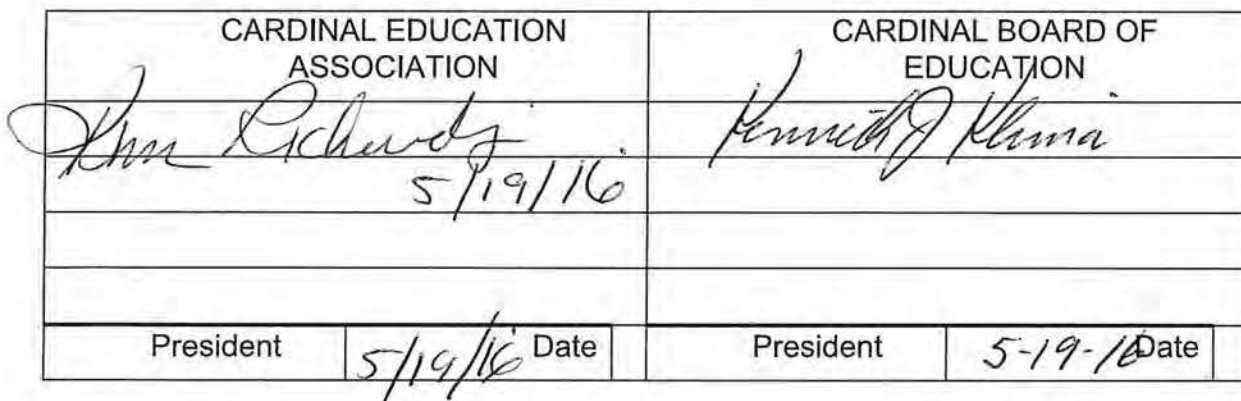 CARDINAL EDUCATION
ASSOCIATION
CARDINAL BOARD OF
EDUCATION
Kenneth J Klima
5/19/16
President 5/19/16 Date
President 5-19-16 Date